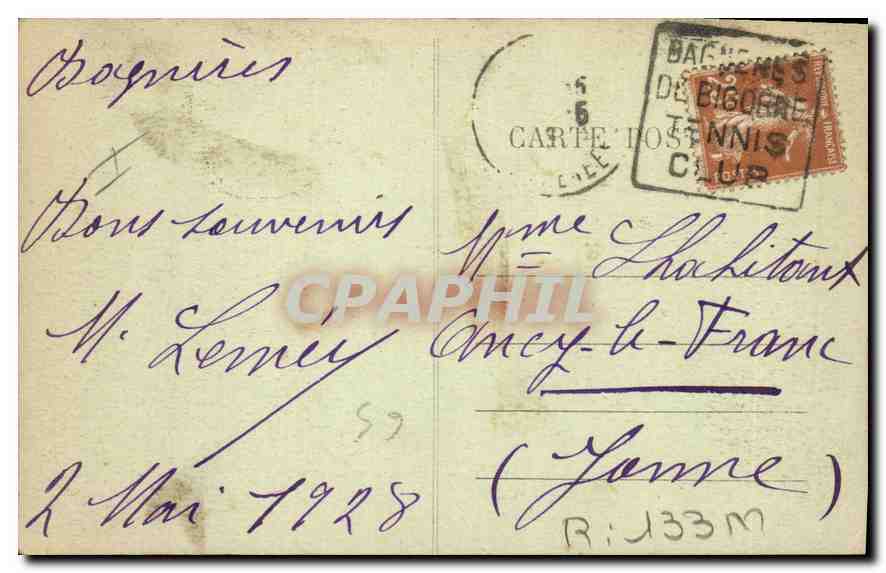 Bagnères
Bons souvenirs
M. Leméy
2 Mai 1928
59
CARTE POST
BAGNE
DE BIGORRE
TENNIS
CLUB
Mme Lhabitant
Ancy-le-Franc
(Yonne)
R: 133M
CPAPHIL